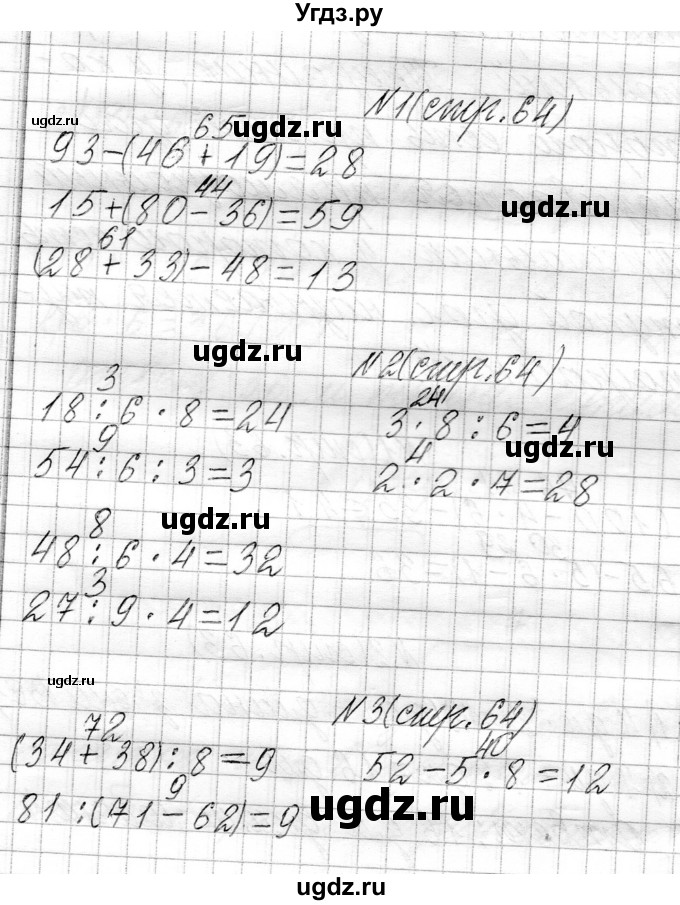 Угдз.ру
ugdz.ru
№1(стр.64)
65
ugdz.ru
93-(46+19)=28
44
15+(80-36)=59
ugdz.ru
61
(28+33)-48=13
ugdz.ru
№2(стр.64)
3
24
18:6·8=24
3·8:6=4
ugdz.ru
9
4
54:6:3=3
2·2·7=28
8
ugdz.ru
48:6·4=32
3
27:9·4=12
ugdz.ru
№3(стр.64)
72
40
(34+38):8=9
52-5·8=12
9
81:(71-62)=9
ugdz.ru
ugdz.ru